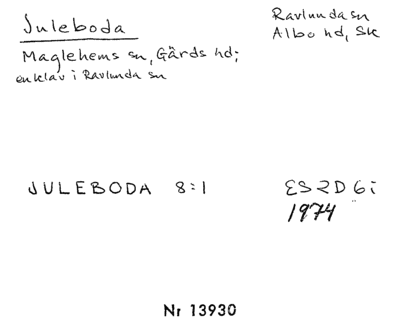 Juleboda
Ravlunda sn
Albo hd, Sk
Maglehems sn, Gärds hd;
enklav i Ravlunda sn
JULEBODA 8:1
2D 6i
1974
Nr 13930